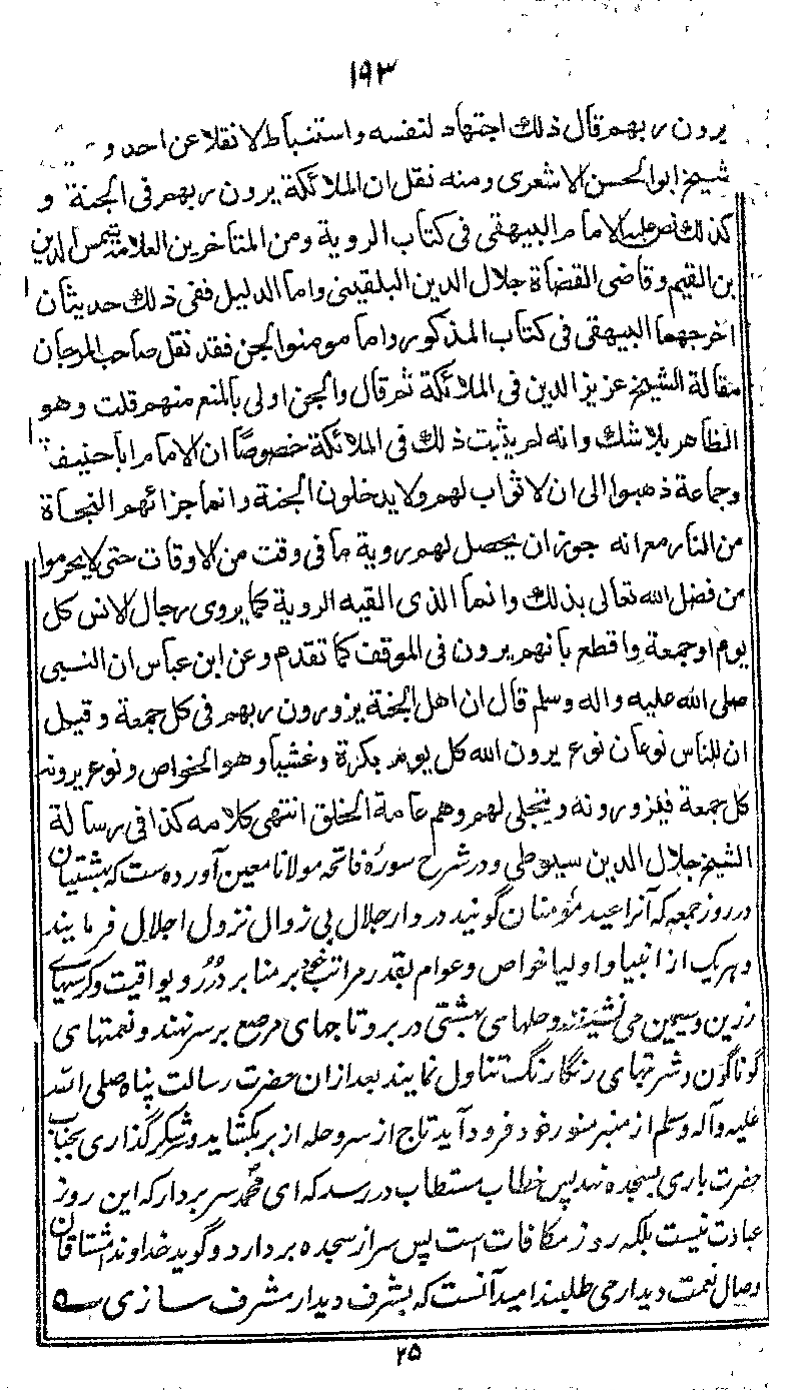 ۱۹۳
يرون ربهم قال ذلك اجتهاد لنفسه واستنباط لا نقلا عن احد و
شيخ ابوالحسن الاشعرى ومنه نقل ان الملائكة يرون ربهم فى الجنة و
كذلك نص عليه الامام البيهقى فى كتاب الروية ومن المتاخرين العلامة شمس الدين
بن القيم وقاضى القضاة جلال الدين البلقينى واما الدليل ففى ذلك حديثان
اخرجهما البيهقى فى كتاب المذكور واما مومنوا الجن فقد نقل صاحب المرجان
مقالة الشيخ عزيز الدين فى الملائكة ثم قال والجن اولى بالمنع منهم قلت وهو
الظاهر بلا شك وانه لم يثبت ذلك فى الملائكة خصوصًا ان الامام ابا حنيفة
وجماعة ذهبوا الى ان لا ثواب لهم ولا يدخلون الجنة وانما جزائهم النجاة
من النار مع انه جوز ان يحصل لهم روية ما فى وقت من الاوقات حتى لا يحرموا
من فضل الله تعالى بذلك وانما الذى القيه الروية كما يروى رجال الانس كل
يوم او جمعة واقطع بانهم يرون فى الموقف كما تقدم وعن ابن عباس ان النبى
صلى الله عليه واله وسلم قال ان اهل الجنة يزورون ربهم فى كل جمعة وقيل
ان للناس نوعان نوع يرون الله كل يوم بكرة وغشيا وهو الخواص ونوع يرونه
كل جمعة فيزورونه ويتجلى لهم وهم عامة الخلق انتهى كلامه كذا فى رسالة
الشيخ جلال الدين سيوطى ودر شرح سورۀ فاتحه مولانا معين آورده ست كه بهشتيان
در روز جمعه كه آنرا عيد مؤمنان گويند در دار جلال بى زوال نزول اجلال فرمايند
وهريك از انبيا و اوليا خواص وعوام بقدر مراتب خود بر منابر درر و يواقيت وكرسيهاى
زرين وسيمين مى نشينند وحلهاى بهشتى در بر وتاجهاى مرصع بر سر نهند و نعمتهاى
گوناگون و شربتهاى رنگا رنگ تناول نمايند بعد ازان حضرت رسالت پناه صلى الله
عليه وآله وسلم از منبر منور خود فرود آيد تاج از سر وحله از بر بكشايد و شكر گذارى بجناب
حضرت بارى بسجده نهد پس خطاب مستطاب در رسد كه اى محمد سر بردار كه اين روز
عبادت نيست بلكه روز مكافات است پس سر از سجده بردارد و گويد خداوندا مشتاقان
وصال نعمت ديدار مى طلبند اميد آنست كه بشرف ديدار مشرف سازى
۲۵